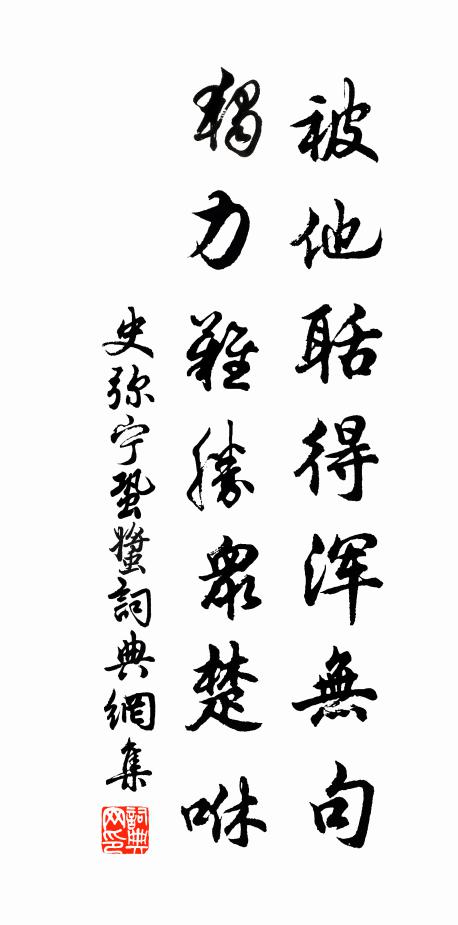 被他聒得浑無句
獨力難勝衆楚咻
史弥宁蛩螿詞典網集
詞典网